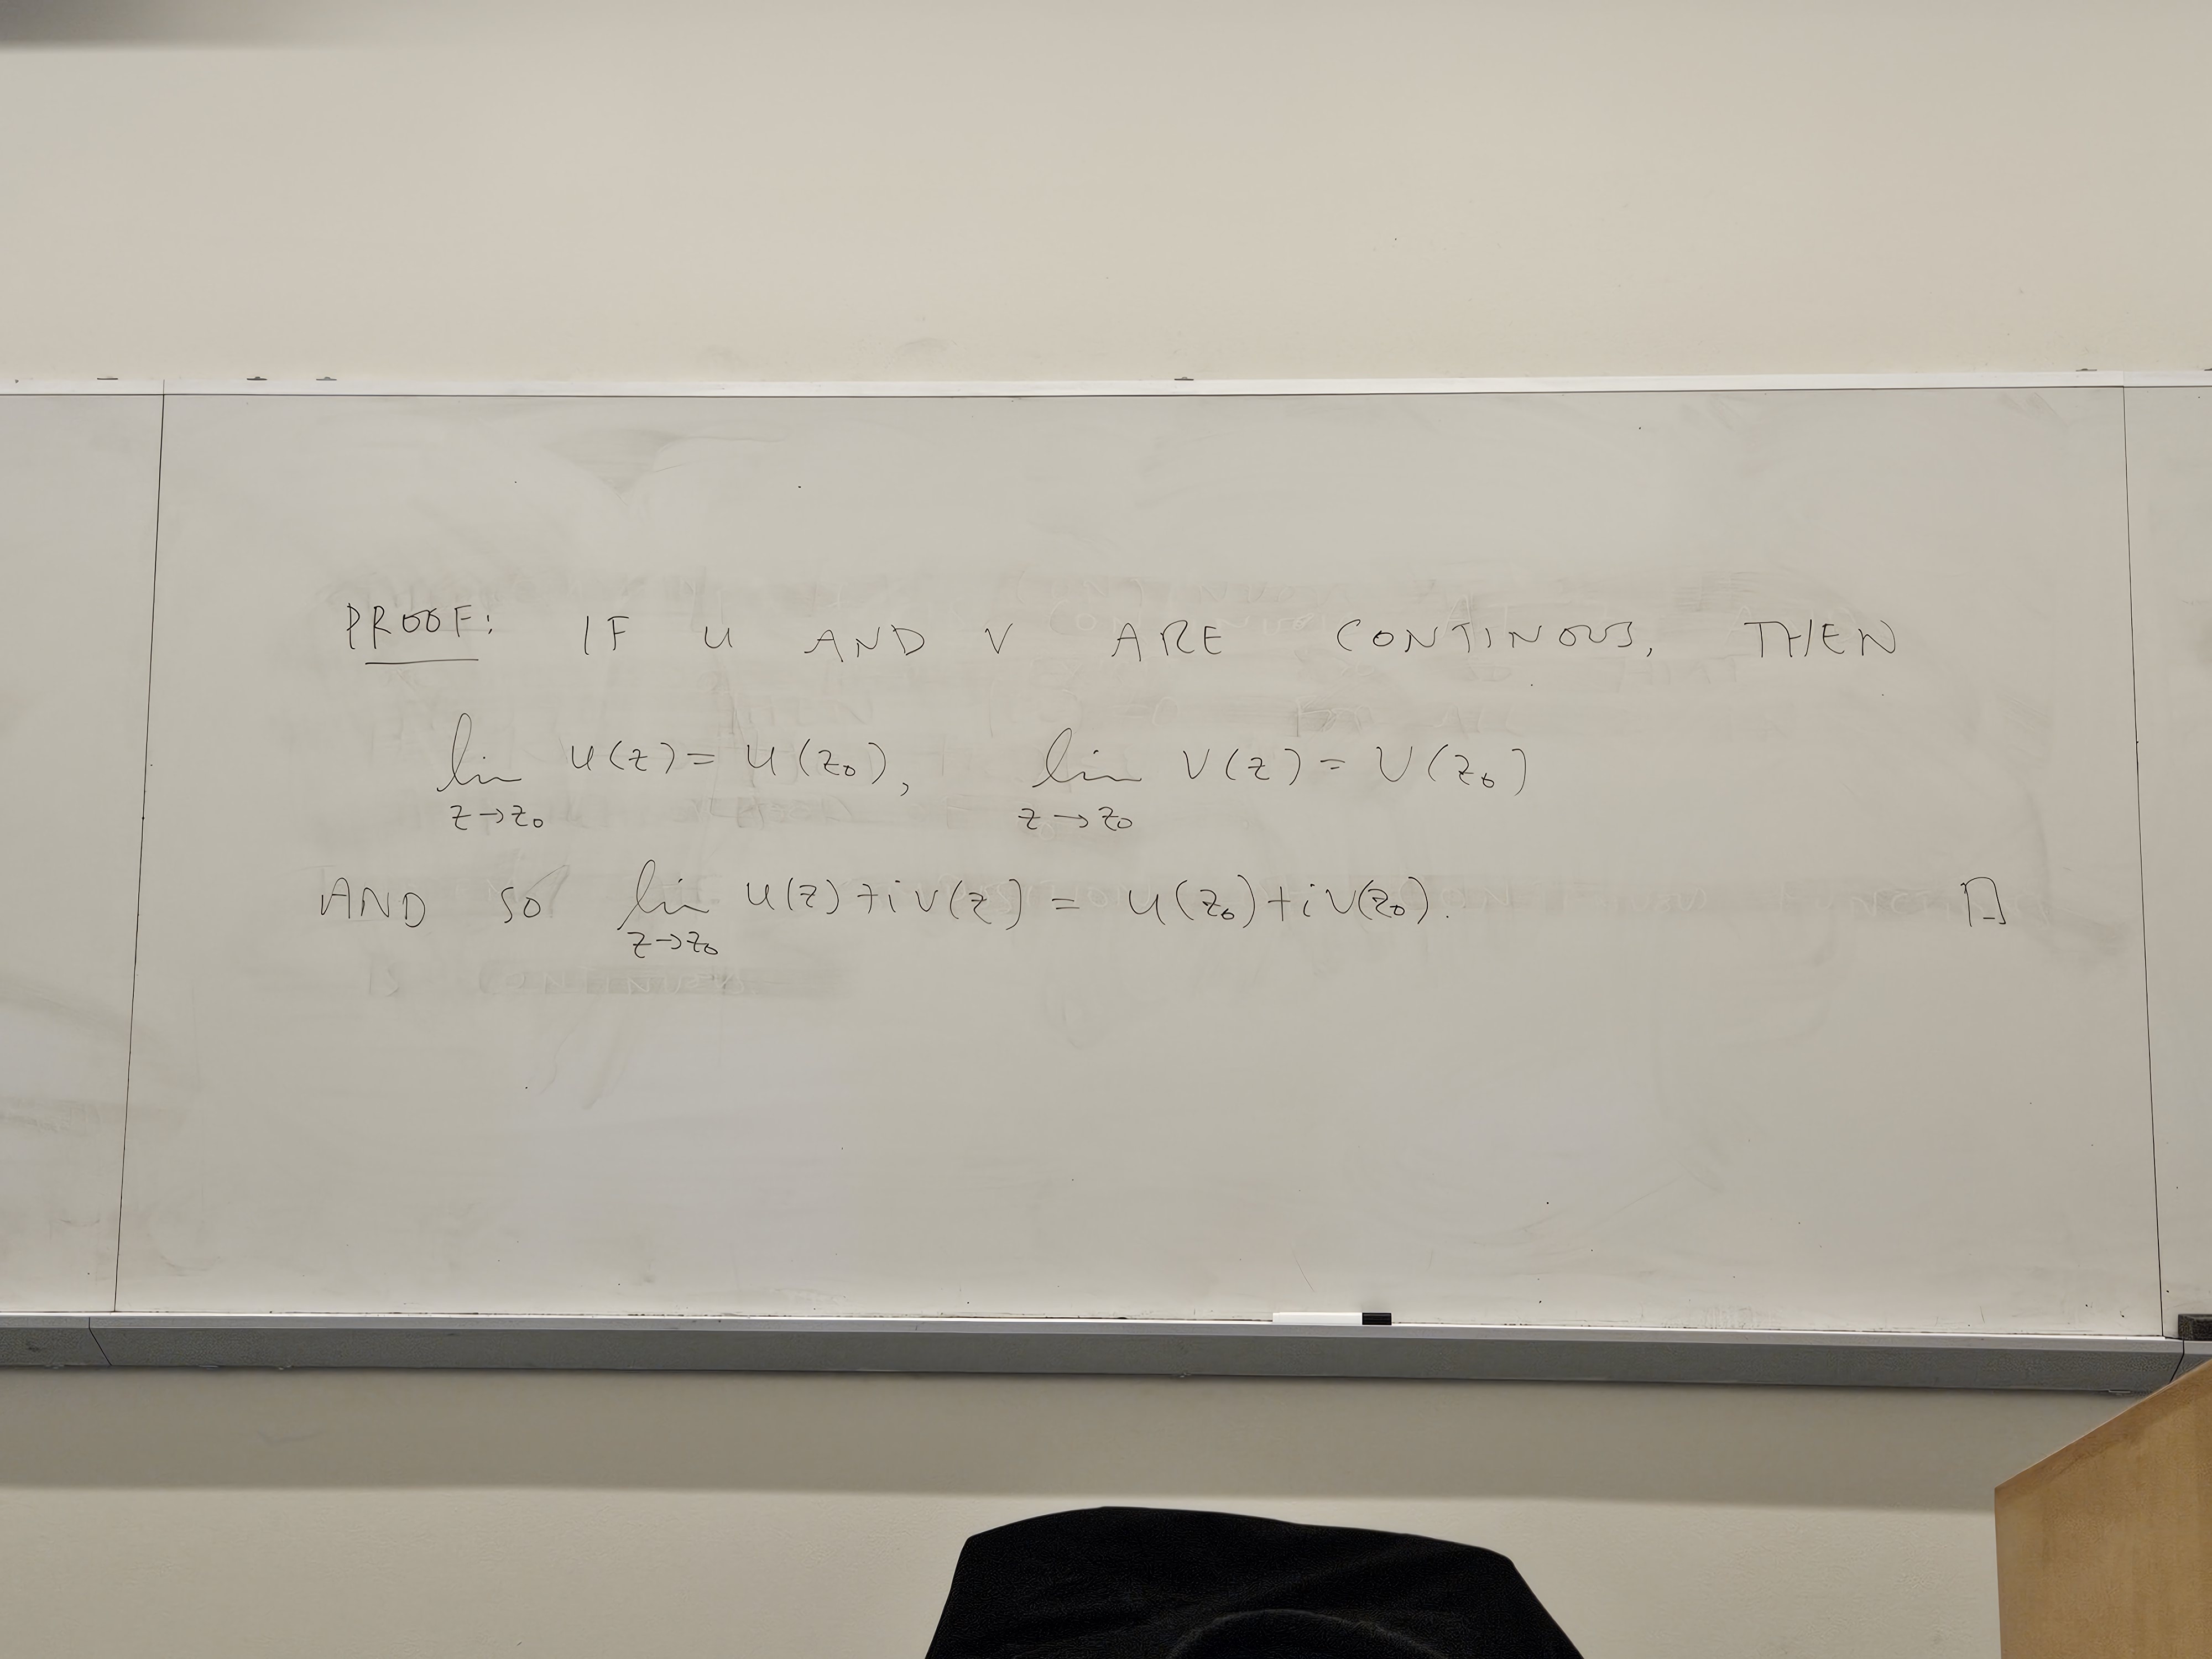 PROOF: IF u AND v ARE CONTINOUS, THEN
lim u(z) = u(z₀), lim v(z) = v(z₀)
z→z₀ z→z₀
AND SO lim u(z)+iv(z) = u(z₀)+iv(z₀). □
z→z₀